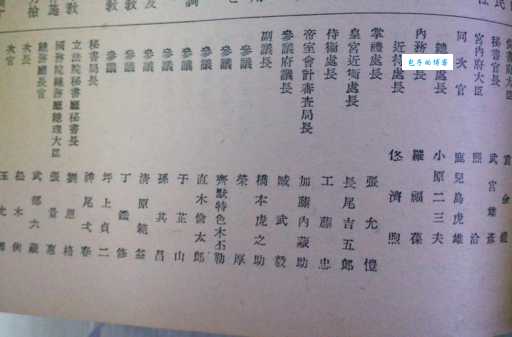 秘書官長 武宮雄彥
宮內府大臣 熙洽
同次官 鹿兒島虎雄
處長 小原二三夫
內務處長 羅福葆
近侍處長 佟濟煦
掌禮處長 張允愷
皇宮近衛處長 長尾吉五郎
侍衛處長 工藤忠
帝室會計審査局長 加藤內藏助
參議府議長 臧式毅
副議長 橋本虎之助
參議 榮厚
參議 齊默特色木丕勒
參議 直木倫太郎
參議 于芷山
參議 孫其昌
參議 清原範益
參議 丁鑑修
坪上貞二
秘書局長 神尾弌春
立法院秘書廳秘書長 劉恩格
國務院總務廳總理大臣 張景惠
總務廳長官 武部六藏
次長 松木俠
次官
包子的博客